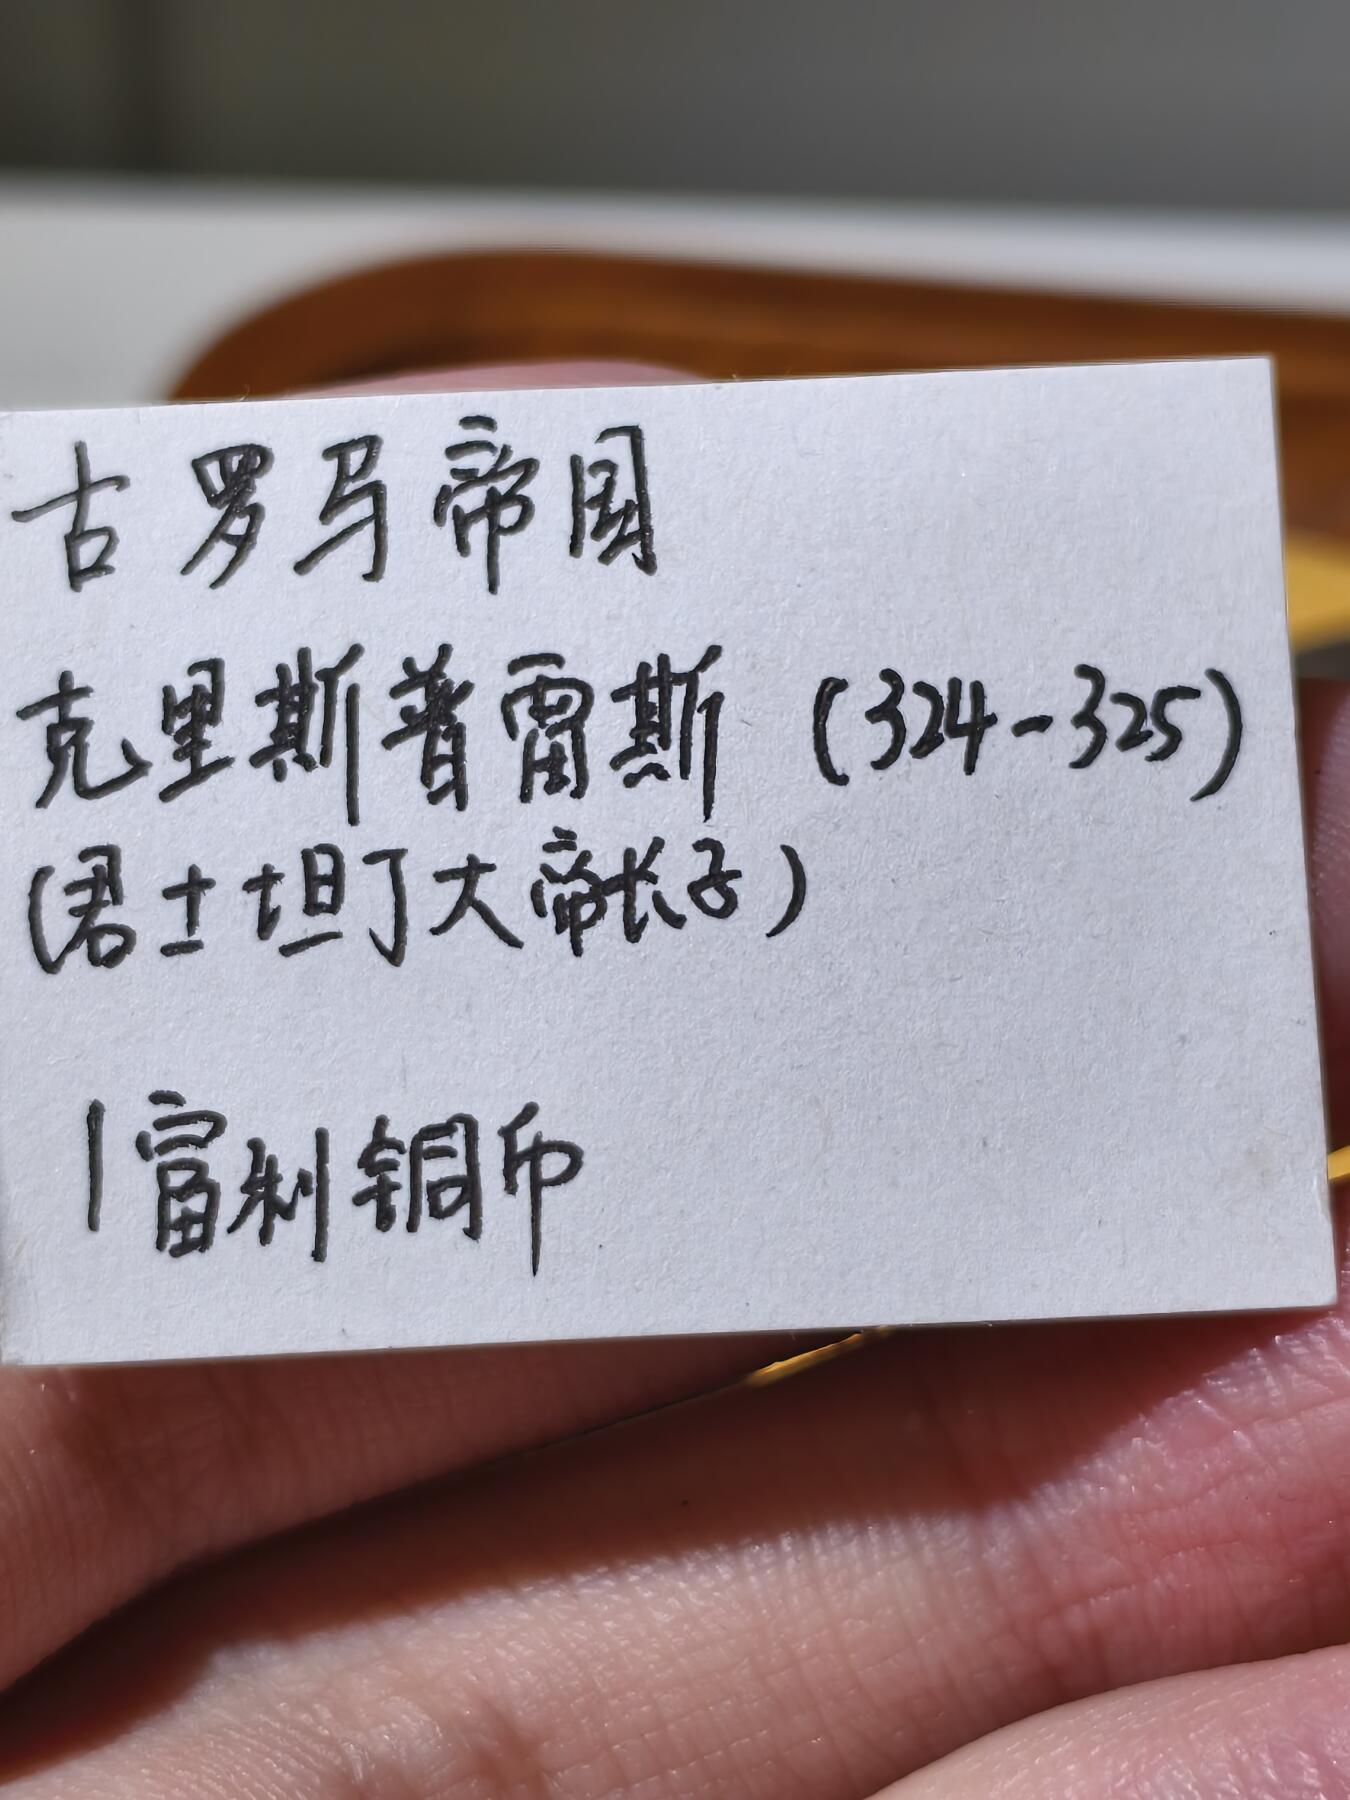 古罗马帝国
克里斯普雷斯 (324-325)
(君士坦丁大帝长子)
1富利铜币